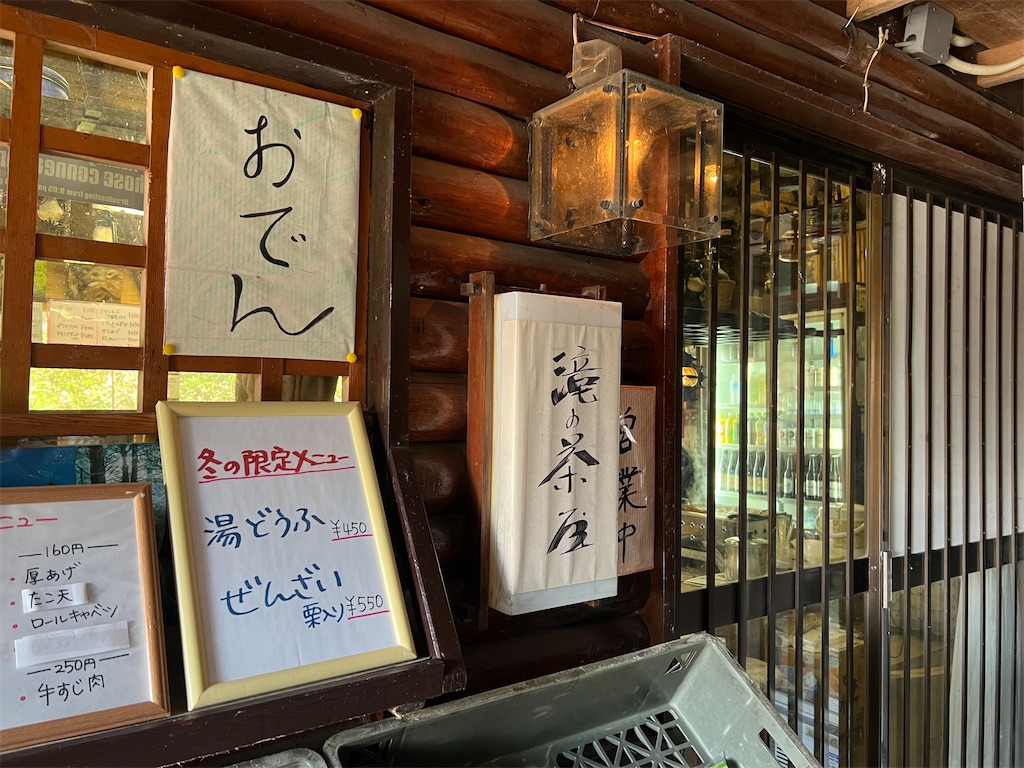 おでん
冬の限定メニュー
湯どうふ ¥450
ぜんざい
栗入り ¥550
ニュー
160円
・厚あげ
・たこ天
・ロールキャベツ
250円
・牛すじ肉
滝の茶屋
営業中